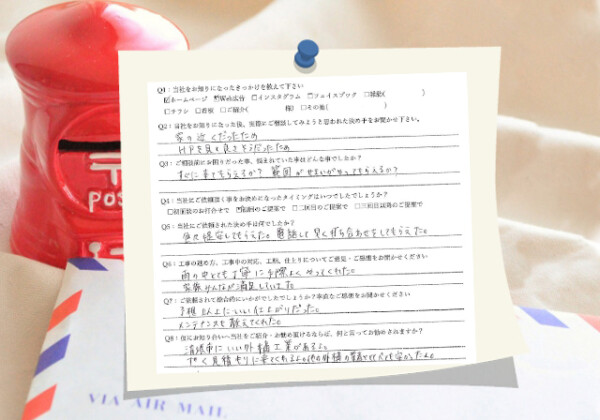 Q1：当社をお知りになったきっかけを教えて下さい
☑ホームページ ☑Web広告 □インスタグラム □フェイスブック □雑誌( )
□チラシ □看板 □ご紹介( 様) □その他( )
Q2：当社をお知りになった後、実際にご相談してみようと思われた決め手をお聞かせ下さい。
家の近くだったため
HPを見て良さそうだったため
Q3：ご相談前にお困りだった事、悩まれていた事はどんな事でしたか？
すぐに来てもらえるか？ 範囲がせまいがやってもらえるか？
Q4：当社にご依頼頂く事をお決めになったタイミングはいつでしたでしょうか？
□初回のお打合せで ☑初回のご提案で □二回目のご提案で □三回目以降のご提案で
Q5：当社にご依頼された決め手は何でしたか？
色々提案してもらえた。電話して早く打ち合わせをしてもらえた。
Q6：工事の進め方、工事中の対応、工期、仕上りについてご意見・ご感想をお聞かせください
雨の中とても丁寧に手際よくやってくれた。
家族みんなが満足していました。
Q7：ご依頼されて総合的にいかがでしたでしょうか？率直なご感想をお聞かせください
予想以上にいい仕上がりだった。
メンテナンスも教えてくれた。
Q8：仮にお知り合いへ当社をご紹介・お勧め頂けるならば、何と言ってお勧めされますか？
清須市にいい外構工事があるよ。
早く見積もりに来てくれるよ。他の外構の業者
POS
VIA AIR MAIL